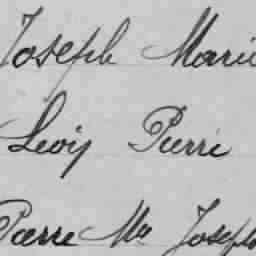 Joseph Marie
Levy Pierre
Pierre Me Joseph